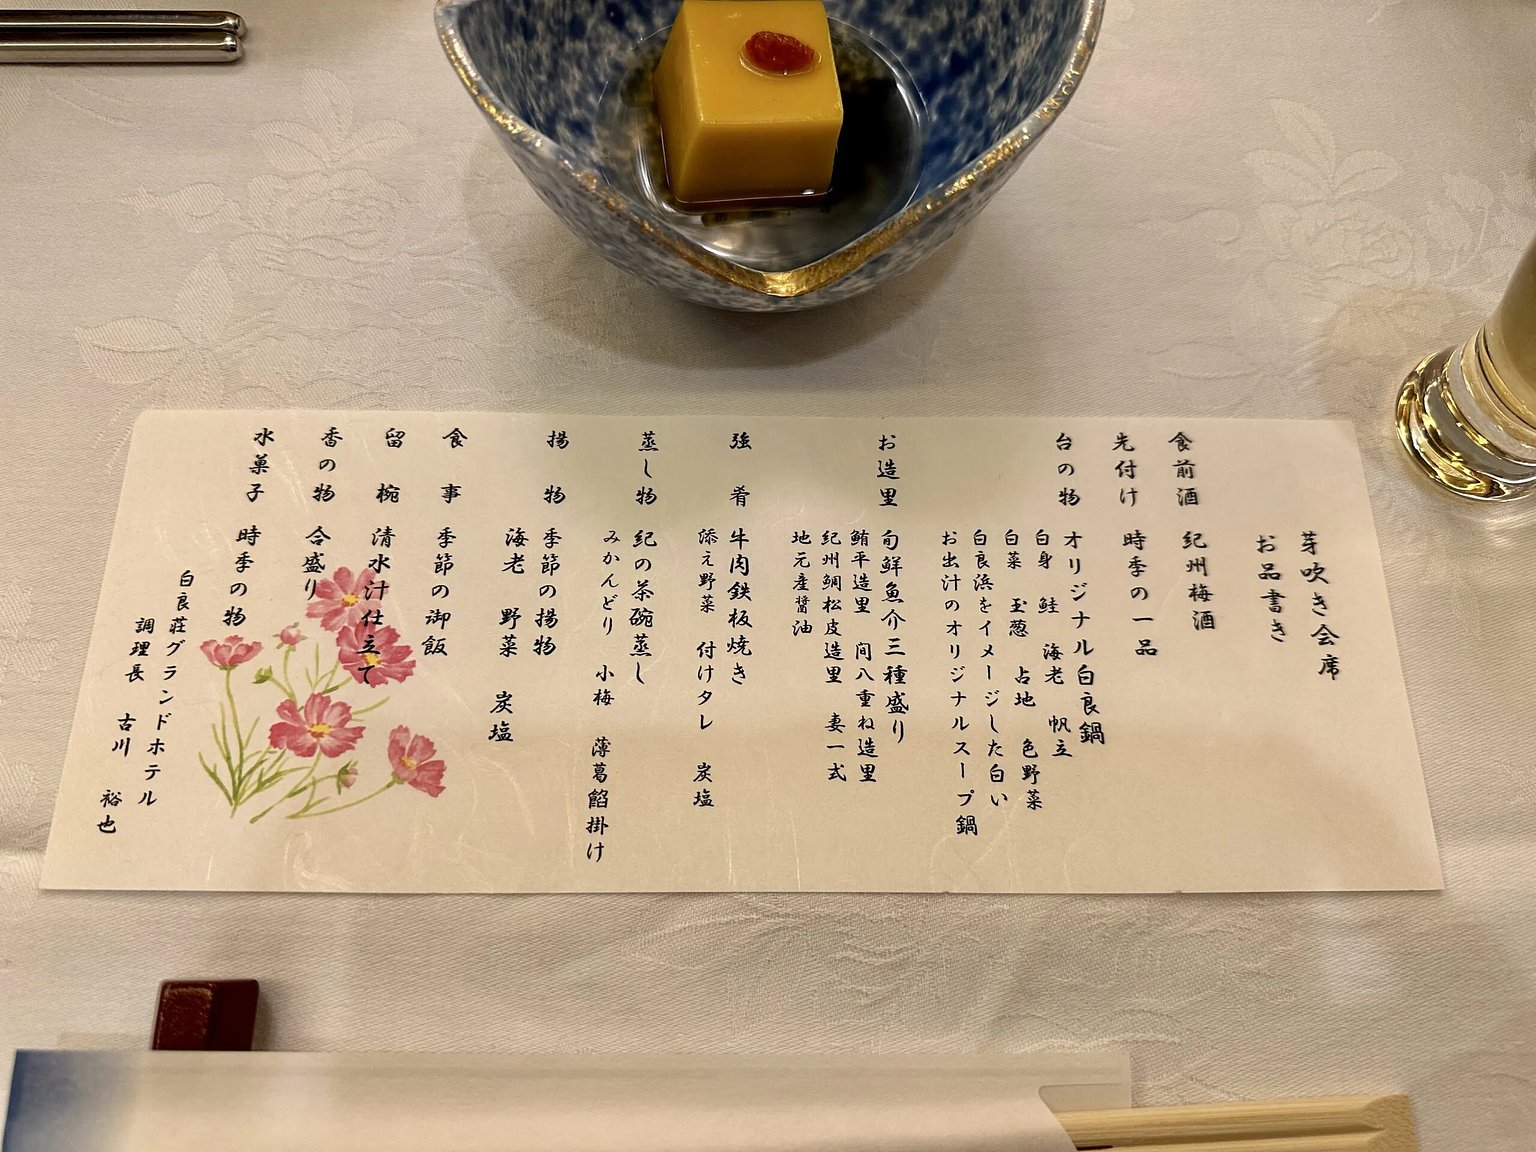 芽吹き会席
お品書き
食前酒 紀州梅酒
先付け 時季の一品
台の物 オリジナル白良鍋
白身 鮭 海老 帆立
白菜 玉葱 占地 色野菜
白良浜をイメージした白い
お出汁のオリジナルスープ鍋
お造里 旬鮮魚介三種盛り
鮪平造里 間八重ね造里
紀州鯛松皮造里 妻一式
地元産醤油
強肴 牛肉鉄板焼き
添え野菜 付けタレ 炭塩
蒸し物 紀の茶碗蒸し
みかんどり 小梅 薄葛餡掛け
揚物 季節の揚物
海老 野菜 炭塩
食事 季節の御飯
留椀 清水汁仕立て
香の物 合盛り
水菓子 時季の物
白良荘グランドホテル
調理長 古川 裕也